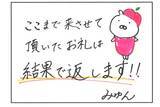 ここまで来させて
頂いたお礼は
結果で返します!!
みゆん